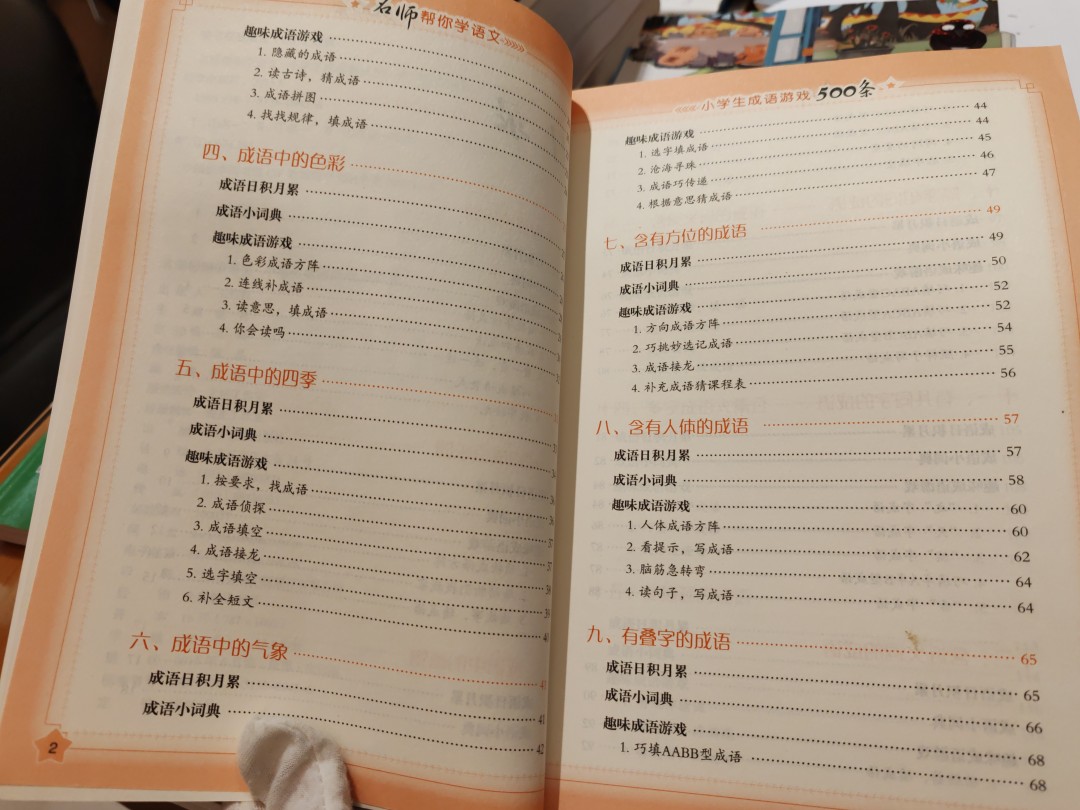 名师帮你学语文
趣味成语游戏
1. 隐藏的成语
2. 读古诗，猜成语
3. 成语拼图
4. 找找规律，填成语
四、成语中的色彩
成语日积月累
成语小词典
趣味成语游戏
1. 色彩成语方阵
2. 连线补成语
3. 读意思，填成语
4. 你会读吗
五、成语中的四季
成语日积月累
成语小词典 34
趣味成语游戏
1. 按要求，找成语 36
2. 成语侦探 37
3. 成语填空 37
4. 成语接龙 38
5. 选字填空 39
6. 补全短文 40
六、成语中的气象 41
成语日积月累 41
成语小词典 42
2
小学生成语游戏500条
趣味成语游戏 44
1. 选字填成语 44
2. 沧海寻珠 45
3. 成语巧传递 46
4. 根据意思猜成语 47
七、含有方位的成语 49
成语日积月累 49
成语小词典 50
趣味成语游戏 52
1. 方向成语方阵 52
2. 巧挑妙选记成语 54
3. 成语接龙 55
4. 补充成语猜课程表 56
八、含有人体的成语 57
成语日积月累 57
成语小词典 58
趣味成语游戏 60
1. 人体成语方阵 60
2. 看提示，写成语 62
3. 脑筋急转弯 64
4. 读句子，写成语 64
九、有叠字的成语 65
成语日积月累 65
成语小词典 66
趣味成语游戏 68
1. 巧填AABB型成语 68